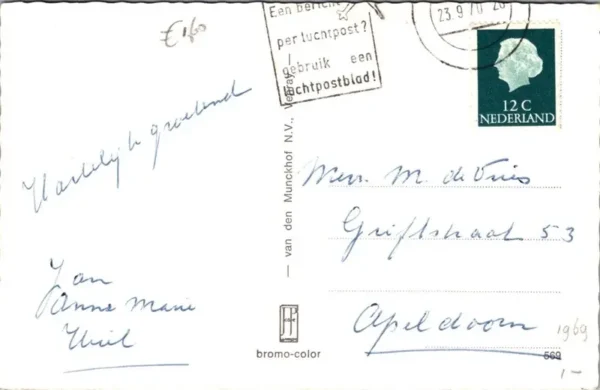 €1,00
Een bericht
per luchtpost?
gebruik een
luchtpostblad!
23.9.70 20
12 C
NEDERLAND
Hartelijk groetend
Jan
Anne Marie
Wiel
— van den Munckhof N.V., Venray —
Mevr. M. de Vries
Griftstraat 53
Apeldoorn
1969
bromo-color
569
1,-